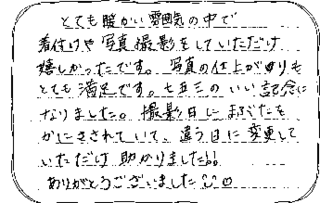 とても暖かい雰囲気の中で
着付けや写真撮影をしていただけ
嬉しかったです。写真の仕上がりも
とても満足です。七五三のいい記念に
なりました。撮影日に まぶたを
かにさされていて、違う日に変更して
いただけ 助かりました!!
ありがとうございました